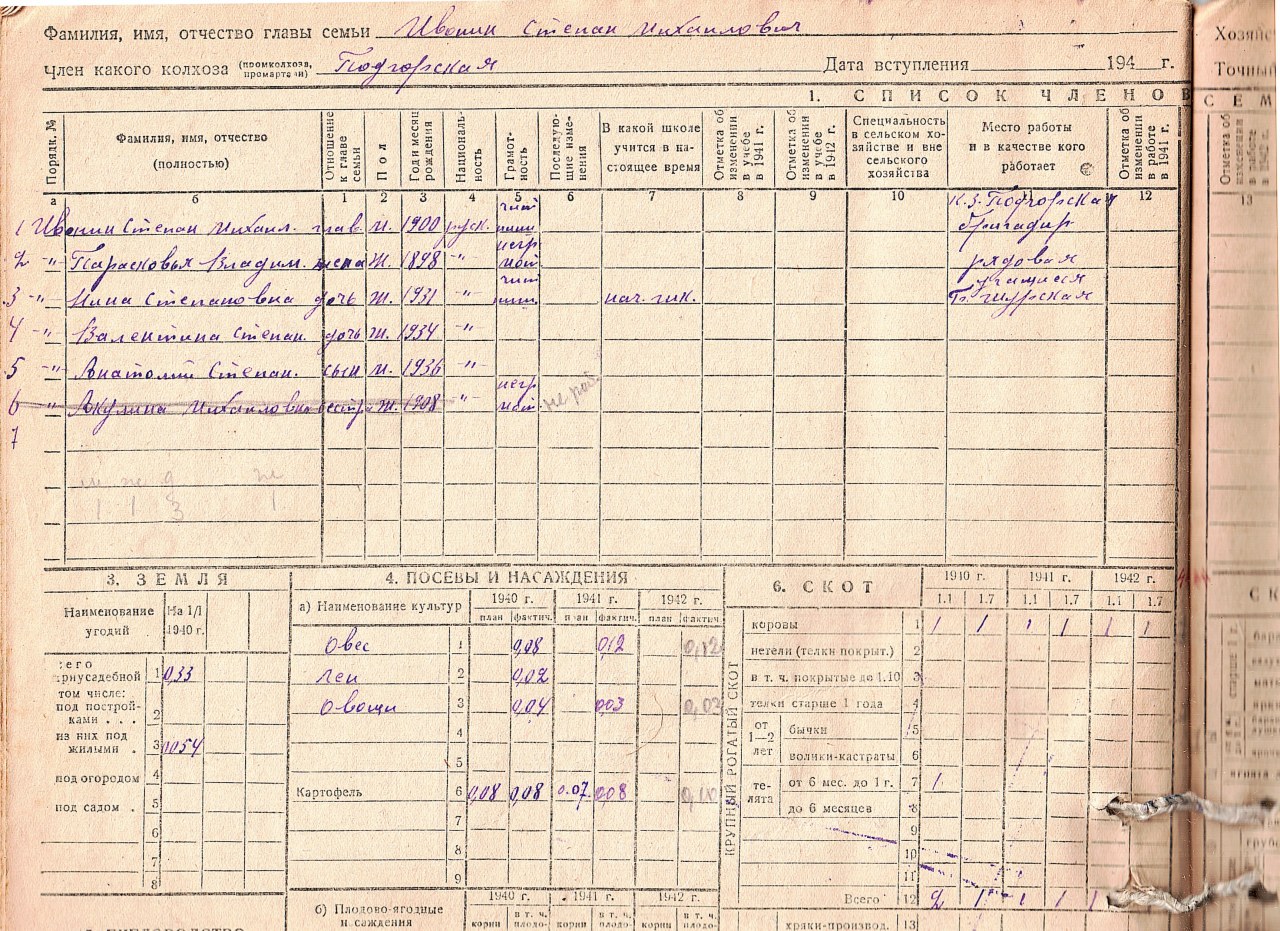 Фамилия, имя, отчество главы семьи Ивонин Степан Михаилович
Член какого колхоза (промколхоза, промартели) Подгорская Дата вступления 194 г.
1. СПИСОК ЧЛЕНОВ
Порядк. № Фамилия, имя, отчество (полностью) Отношение к главе семьи Пол Год и месяц рождения Национальность Грамотность Последующие изменения В какой школе учится в настоящее время Отметка об изменении в учебе в 1941 г. Отметка об изменении в учебе в 1942 г. Специальность в сельском хозяйстве и вне сельского хозяйства Место работы и в качестве кого работает Отметка об изменении в работе в 1941 г.
а б 1 2 3 4 5 6 7 8 9 10 11 12
1 Ивонин Степан Михаил. глав. м. 1900 руск. к.з. Подгорская бригадир
2 -"- Парасковья Владим. жена ж. 1898 -"- негр рядовая
3 -"- Нина Степановна дочь ж. 1931 -"- нач. шк. учащиеся
4 -"- Валентина Степан. дочь ж. 1934 -"-
5 -"- Анатолий Степан. сын м. 1936 -"-
6 " Акулина Михаиловна сестра ж. 1908 " негр
7
1 1 3 1
3. ЗЕМЛЯ
Наименование угодий На 1/I 1940 г.
всего приусадебной 1 0,33
том числе: под постройками . . . 2
из них под жилыми . 3 0054
под огородом 4
под садом . 5
6
7
8
4. ПОСЕВЫ И НАСАЖДЕНИЯ
а) Наименование культур 1940 г. 1941 г. 1942 г.
план фактич. план фактич. план фактич.
Овес 1 0,08 0,12 0,12
Лен 2 0,02
Овощи 3 0,04 0,03 0,03
4
5
Картофель 6 0,08 0,08 0.07 0,08 0,10
7
8
9
б) Плодово-ягодные насаждения 1940 г. 1941 г. 1942 г.
корни в т. ч. плодо- корни в т. ч. плодо- корни в т. ч. плодо-
6. СКОТ
1940 г. 1941 г. 1942 г.
1.1 1.7 1.1 1.7 1.1 1.7
КРУПНЫЙ РОГАТЫЙ СКОТ
коровы 1 1 1 1 1 1 1
нетели (телки покрыт.) 2
в т. ч. покрытые до 1.10 3
телки старше 1 года 4
от 1—2 лет бычки 5
волики-кастраты 6
телята от 6 мес. до 1 г. 7 1
до 6 месяцев 8
9
10
11
Всего 12 2 1 1 1 1
хряки-производ. 13
Хозяйс
Точный
СЕМ
Отметка об изменении в работе в 1942 г.
13
СК